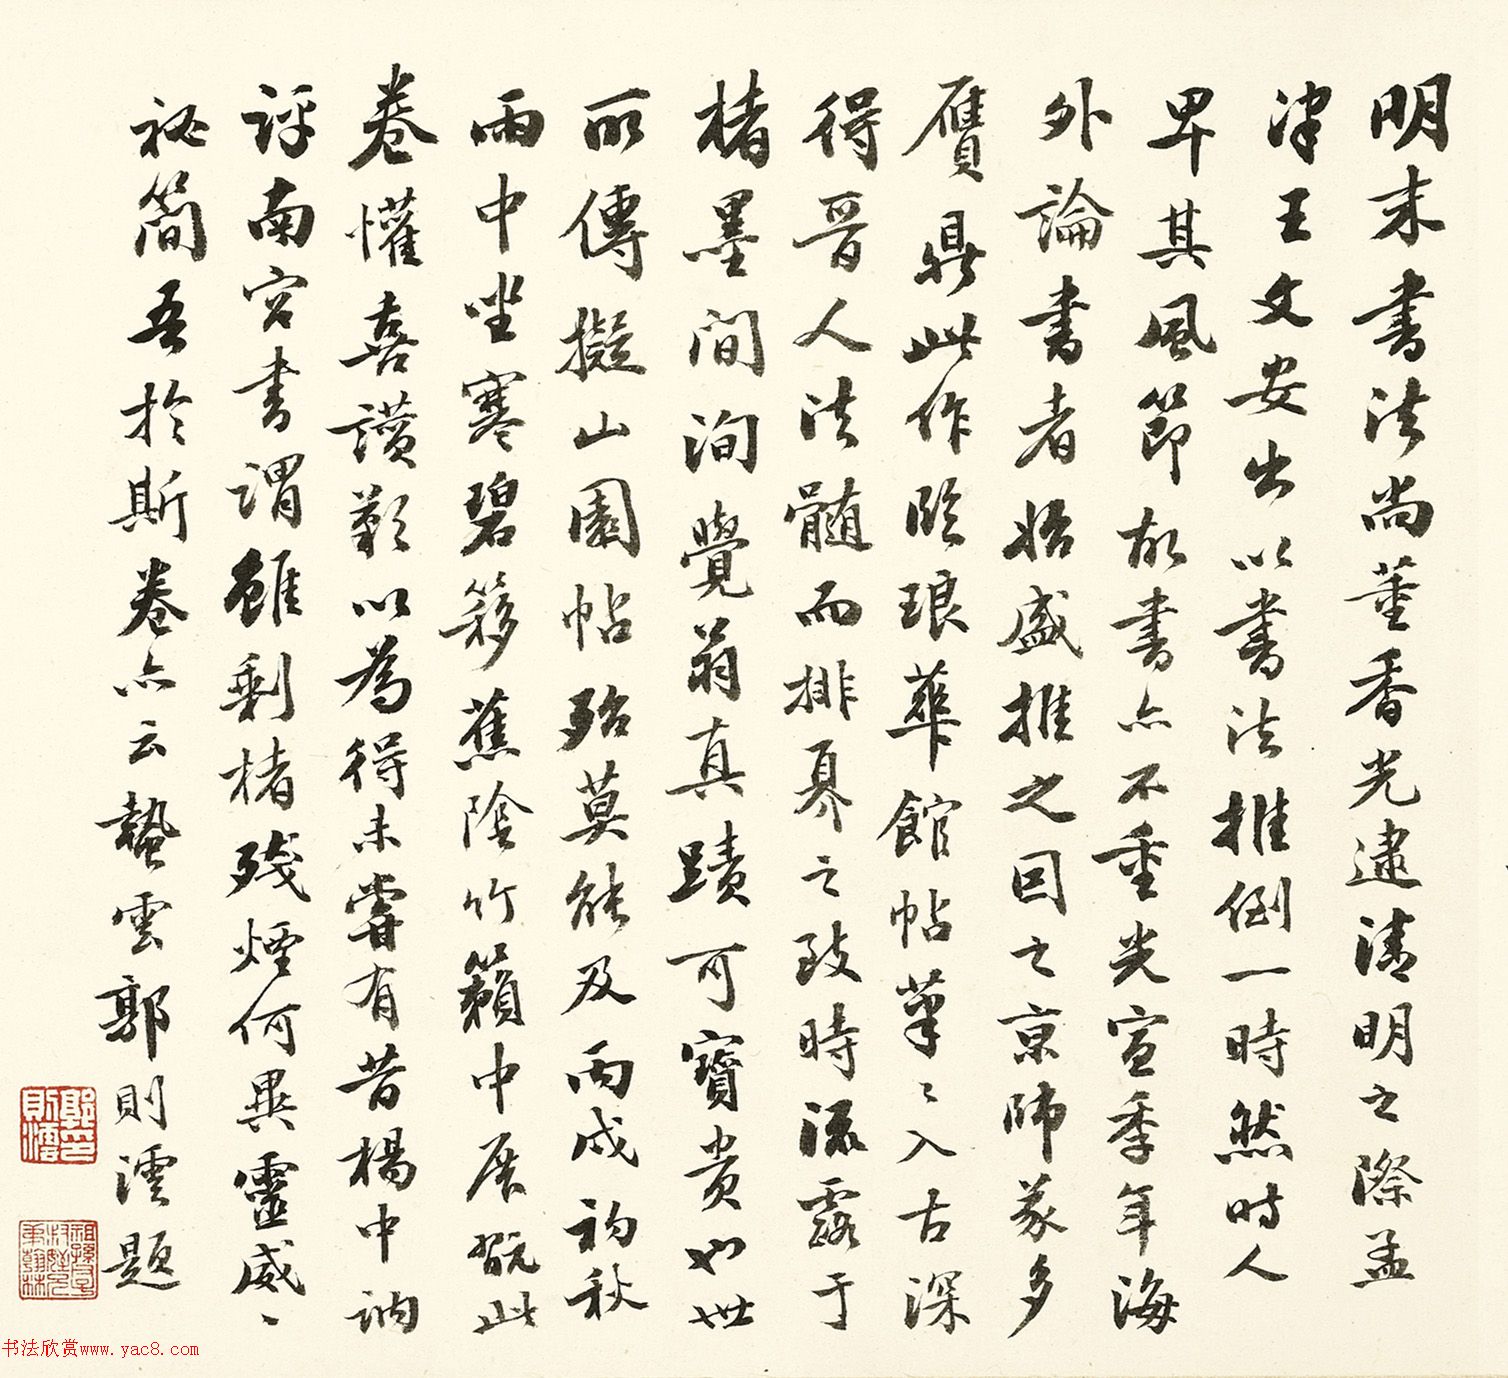 明末書法尚董香光逮清明之際孟
津王文安出以書法推倒一時然時人
卑其風節故書亦不重光宣季年海
外論書者始盛推之因之京師蒙多
贋鼎此作臨琅華館帖筆〻入古深
得晉人法髓而排奡之致時流露于
楮墨間洵覺翁真蹟可寶貴也世
所傳擬山園帖殆莫能及丙戌初秋
雨中坐寒碧簃蕉陰竹籟中展翫此
卷懽喜讚歎以為得未嘗有昔楊中訥
評南宮書謂雖剩楮殘煙何異靈威〻
祕簡吾於斯卷亦云蟄雲郭則澐題
郭則澐印
祖孫父子叔姪兄弟翰林
书法欣赏www.yac8.com